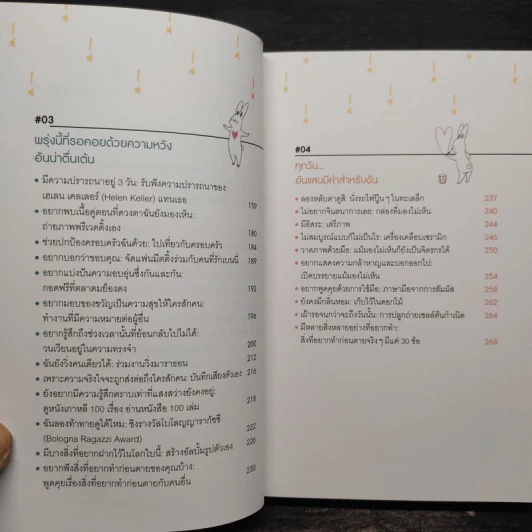 #03
พรุ่งนี้ที่รอคอยด้วยความหวัง
อันน่าตื่นเต้น
• มีความปรารถนาอยู่ 3 วัน: รับฟังความปรารถนาของ
เฮเลน เคลเลอร์ (Helen Keller) แทนเธอ 159
• อยากพบเนื้อคู่ตอนที่ดวงตาฉันยังมองเห็น:
ถ่ายภาพพรีเวดดิ้งเอง 180
• ช่วยปกป้องครอบครัวฉันด้วย: ไปเที่ยวกับครอบครัว 184
• อยากบอกว่าขอบคุณ: จัดแฟนมีตติ้งร่วมกับคนที่รักเบนนี่ 189
• อยากแบ่งปันความอบอุ่นซึ่งกันและกัน:
กอดฟรีที่ตลาดมยองดง 192
• อยากมอบของขวัญเป็นความสุขให้ใครสักคน:
ทำงานที่มีความหมายต่อผู้อื่น 196
• อยากรู้สึกถึงช่วงเวลานั้นที่ย้อนกลับไปไม่ได้:
วนเวียนอยู่ในความทรงจำ 200
• ฉันยังวิ่งคนเดียวได้: ร่วมงานวิ่งมาราธอน 212
• เพราะความจริงใจจะถูกส่งต่อถึงใครสักคน: บันทึกเสียงตัวเอง 216
• ยังอยากมีความรู้สึกตราบเท่าที่แสงสว่างยังคงอยู่:
ดูหนังเกาหลี 100 เรื่อง อ่านหนังสือ 100 เล่ม 218
• ฉันลองท้าทายดูได้ไหม: ชิงรางวัลโบโลญญารากัซซี
(Bologna Ragazzi Award) 222
• มีบางสิ่งที่อยากฝากไว้ในโลกใบนี้: สร้างอัลบั้มรูปตัวเอง 226
• อยากฟังสิ่งที่อยากทำก่อนตายของคุณบ้าง:
พูดคุยเรื่องสิ่งที่อยากทำก่อนตายกับคนอื่น 230
#04
ทุกวัน...
อันแสนมีค่าสำหรับฉัน
• ลองหลับตาดูสิ: นั่งรถไฟปู๊นๆ ในทะเลลึก 237
• ไม่อยากจินตนาการเลย: กล่องที่มองไม่เห็น 240
• มีอิสระ: เสรีภาพ 244
• ไม่สมบูรณ์แบบก็ไม่เป็นไร: เครื่องเคลือบเซรามิก 246
• วาดภาพด้วยมือ: แม้มองไม่เห็นก็ยังเป็นจิตรกรได้ 250
• อยากแสดงความกล้าหาญและบอกออกไป:
เปิดบรรยายแม้มองไม่เห็น 254
• อยากพูดคุยด้วยการใช้มือ: ภาษามือจากการสัมผัส 258
• ยังคงมีกลิ่นหอม: เก็บไว้ในดอกไม้ 262
• เฝ้ารอจนกว่าจะถึงวันนั้น: การปลูกถ่ายเซลล์ต้นกำเนิด 264
• มีหลายสิ่งหลายอย่างที่อยากทำ:
สิ่งที่อยากทำก่อนตายจริงๆ มีแค่ 30 ข้อ 268